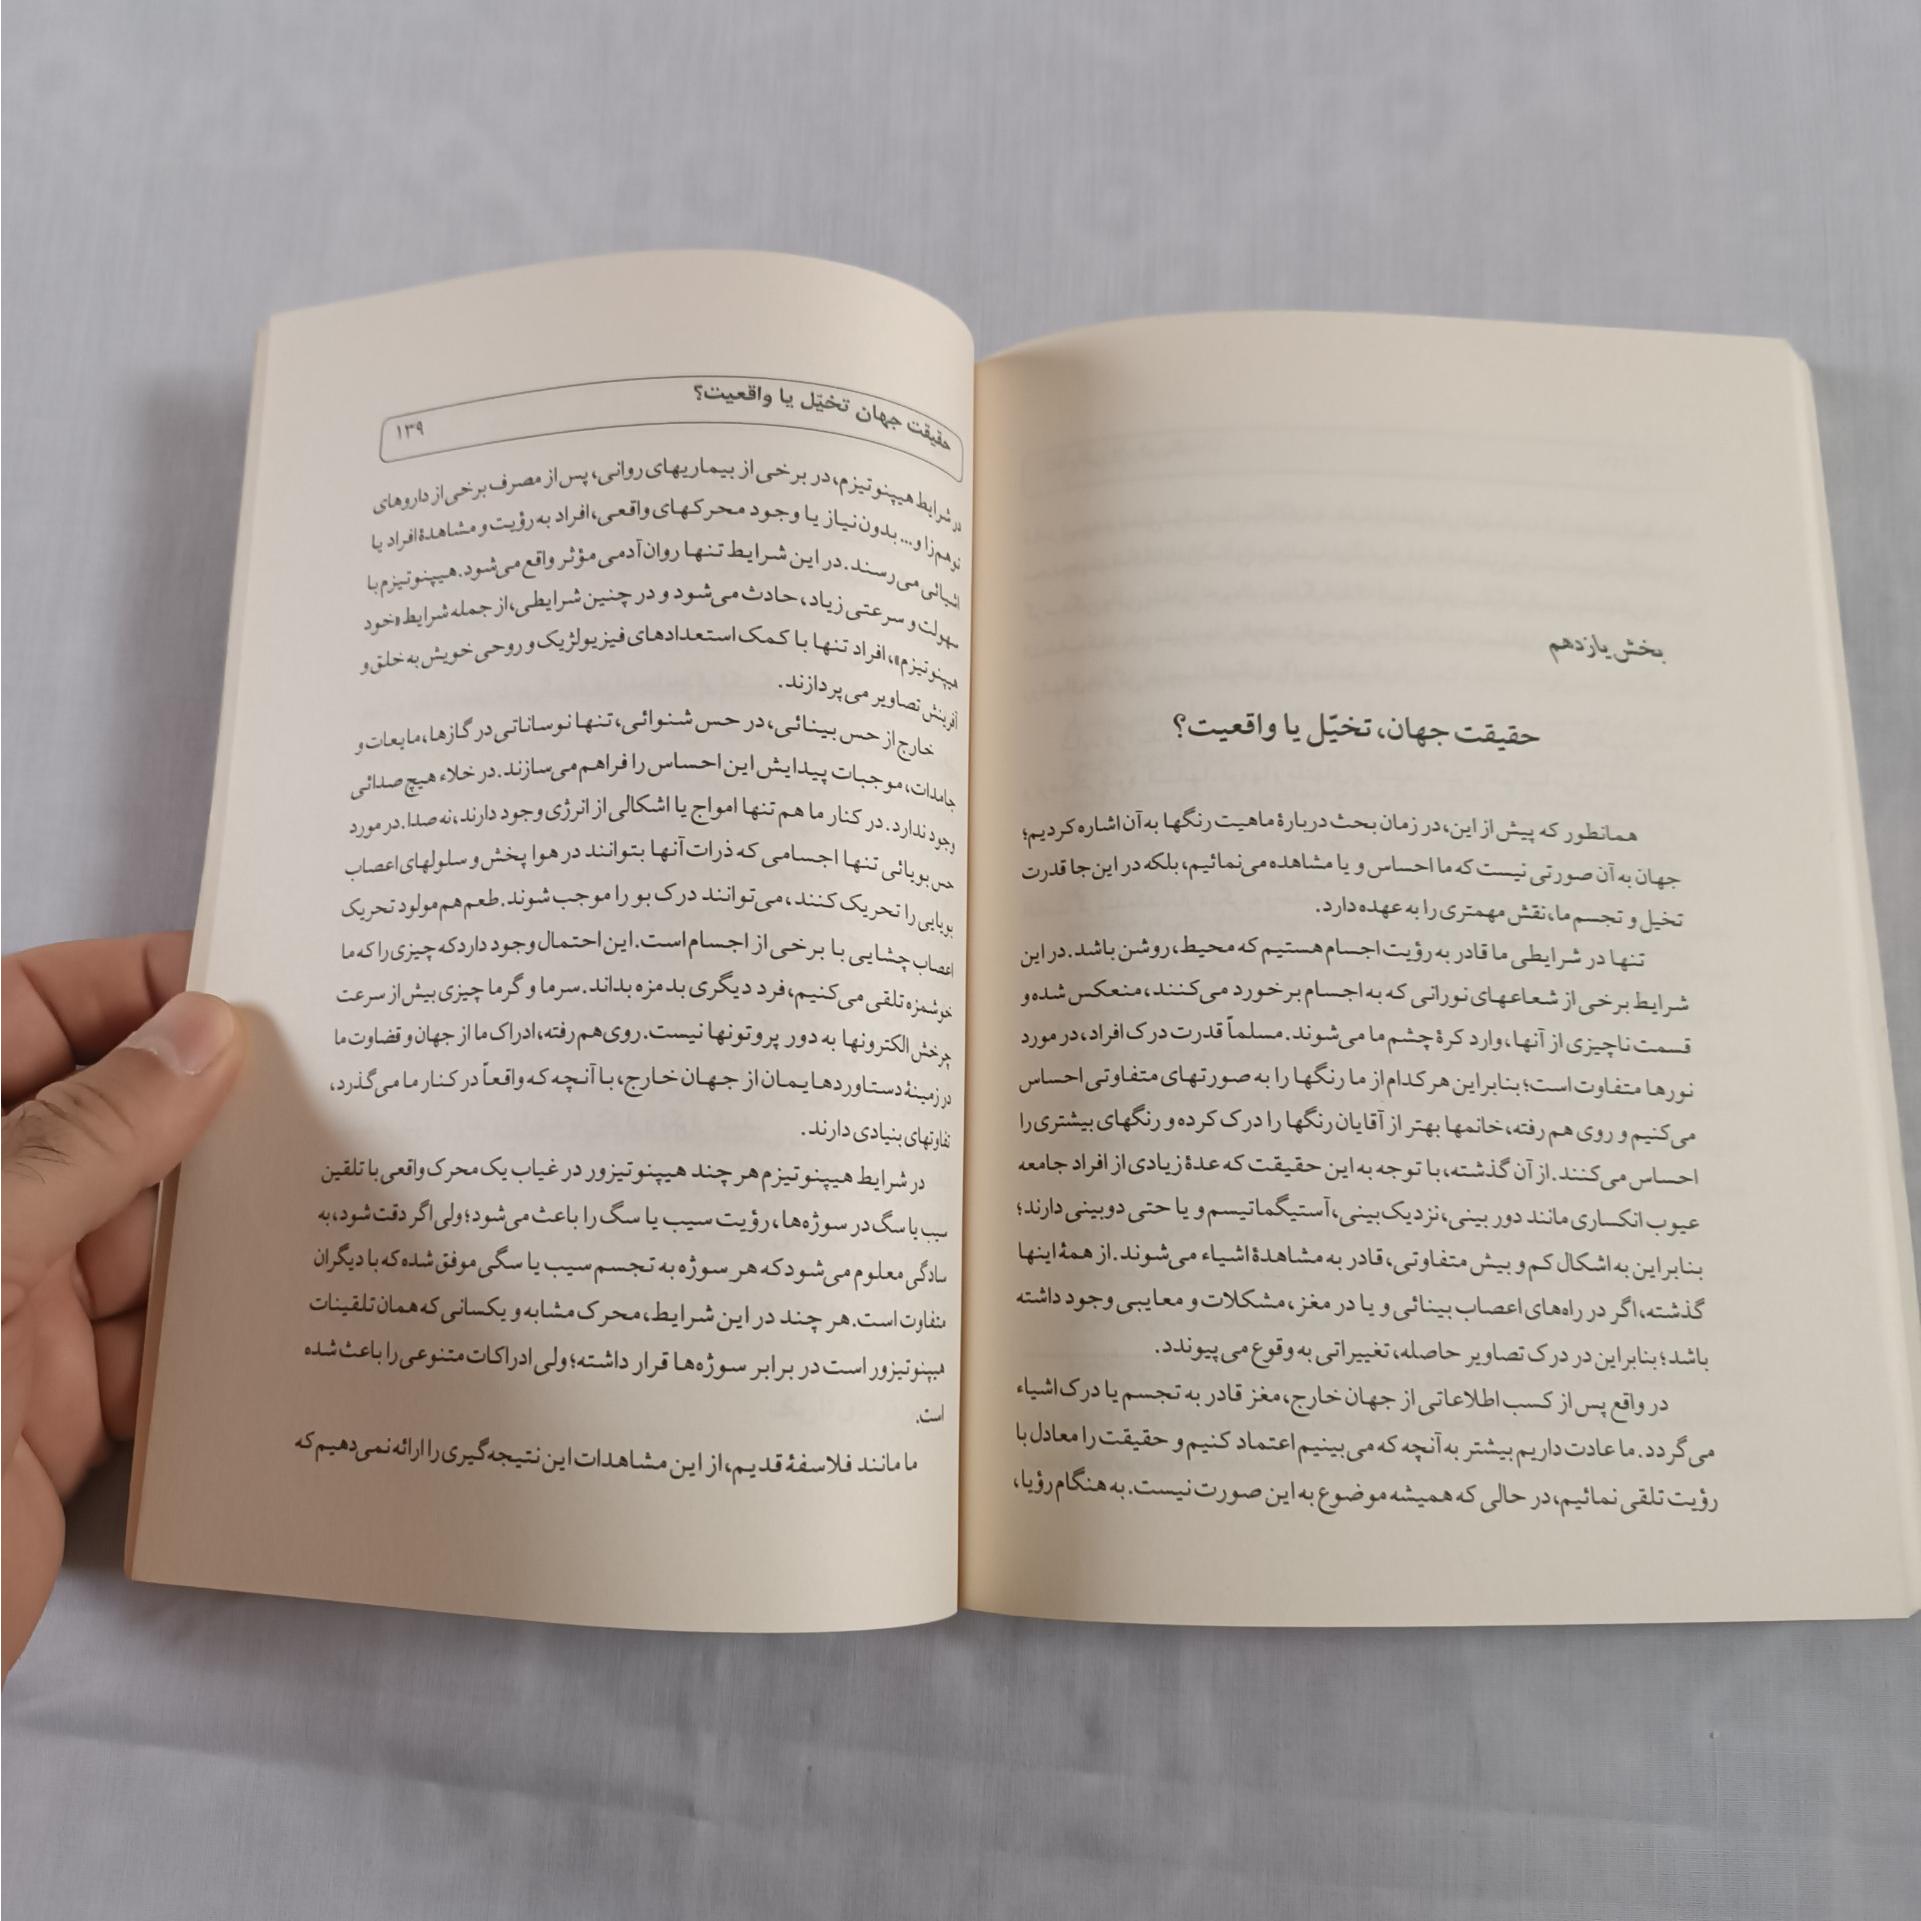 بخش یازدهم
حقیقت جهان، تخیّل یا واقعیت؟
همانطور که پیش از این، در زمان بحث دربارهٔ ماهیت رنگها به آن اشاره کردیم؛
جهان به آن صورتی نیست که ما احساس و یا مشاهده می‌نمائیم، بلکه در این‌جا قدرت
تخیل و تجسم ما، نقش مهمتری را به عهده دارد.
تنها در شرایطی ما قادر به رؤیت اجسام هستیم که محیط، روشن باشد. در این
شرایط برخی از شعاعهای نورانی که به اجسام برخورد می‌کنند، منعکس شده و
قسمت ناچیزی از آنها، وارد کرهٔ چشم ما می‌شوند. مسلماً قدرت درک افراد، در مورد
نورها متفاوت است؛ بنابراین هر کدام از ما رنگها را به صورتهای متفاوتی احساس
می‌کنیم و روی هم رفته، خانمها بهتر از آقایان رنگها را درک کرده و رنگهای بیشتری را
احساس می‌کنند. از آن گذشته، با توجه به این حقیقت که عدهٔ زیادی از افراد جامعه
عیوب انکساری مانند دور بینی، نزدیک‌بینی، آستیگماتیسم و یا حتی دوبینی دارند؛
بنابراین به اشکال کم و بیش متفاوتی، قادر به مشاهدهٔ اشیاء می‌شوند. از همهٔ اینها
گذشته، اگر در راه‌های اعصاب بینائی و یا در مغز، مشکلات و معایبی وجود داشته
باشد؛ بنابراین در درک تصاویر حاصله، تغییراتی به وقوع می‌پیوندد.
در واقع پس از کسب اطلاعاتی از جهان خارج، مغز قادر به تجسم یا درک اشیاء
می‌گردد. ما عادت داریم بیشتر به آنچه که می‌بینیم اعتماد کنیم و حقیقت را معادل با
رؤیت تلقی نمائیم، در حالی که همیشه موضوع به این صورت نیست. به هنگام رؤیا،
حقیقت جهان تخیّل یا واقعیت؟ ۱۳۹
در شرایط هیپنوتیزم، در برخی از بیماریهای روانی، پس از مصرف برخی از داروهای
توهم‌زا و... بدون نیاز یا وجود محرکهای واقعی، افراد به رؤیت و مشاهدهٔ افراد یا
اشیائی می‌رسند. در این شرایط تنها روان آدمی مؤثر واقع می‌شود. هیپنوتیزم با
سهولت و سرعتی زیاد، حادث می‌شود و در چنین شرایطی، از جمله شرایط «خود
هیپنوتیزم»، افراد تنها با کمک استعدادهای فیزیولژیک و روحی خویش به خلق و
آفرینش تصاویر می‌پردازند.
خارج از حس بینائی، در حس شنوائی، تنها نوساناتی در گازها، مایعات و
جامدات، موجبات پیدایش این احساس را فراهم می‌سازند. در خلاء هیچ صدائی
وجود ندارد. در کنار ما هم تنها امواج یا اشکالی از انرژی وجود دارند، نه صدا. در مورد
حس بویائی تنها اجسامی که ذرات آنها بتوانند در هوا پخش و سلولهای اعصاب
بویایی را تحریک کنند، می‌توانند درک بو را موجب شوند. طعم هم مولود تحریک
اعصاب چشایی با برخی از اجسام است. این احتمال وجود دارد که چیزی را که ما
خوشمزه تلقی می‌کنیم، فرد دیگری بدمزه بداند. سرما و گرما چیزی بیش از سرعت
چرخش الکترونها به دور پروتونها نیست. روی هم رفته، ادراک ما از جهان و قضاوت ما
در زمینهٔ دستاوردهایمان از جهان خارج، با آنچه که واقعاً در کنار ما می‌گذرد،
تفاوتهای بنیادی دارند.
در شرایط هیپنوتیزم هر چند هیپنوتیزور در غیاب یک محرک واقعی با تلقین
سیب یا سگ در سوژه‌ها، رؤیت سیب یا سگ را باعث می‌شود؛ ولی اگر دقت شود، به
سادگی معلوم می‌شود که هر سوژه به تجسم سیب یا سگی موفق شده که با دیگران
متفاوت است. هر چند در این شرایط، محرک مشابه و یکسانی که همان تلقینات
هیپنوتیزور است در برابر سوژه‌ها قرار داشته؛ ولی ادراکات متنوعی را باعث شده
است.
ما مانند فلاسفهٔ قدیم، از این مشاهدات این نتیجه‌گیری را ارائه نمی‌دهیم که